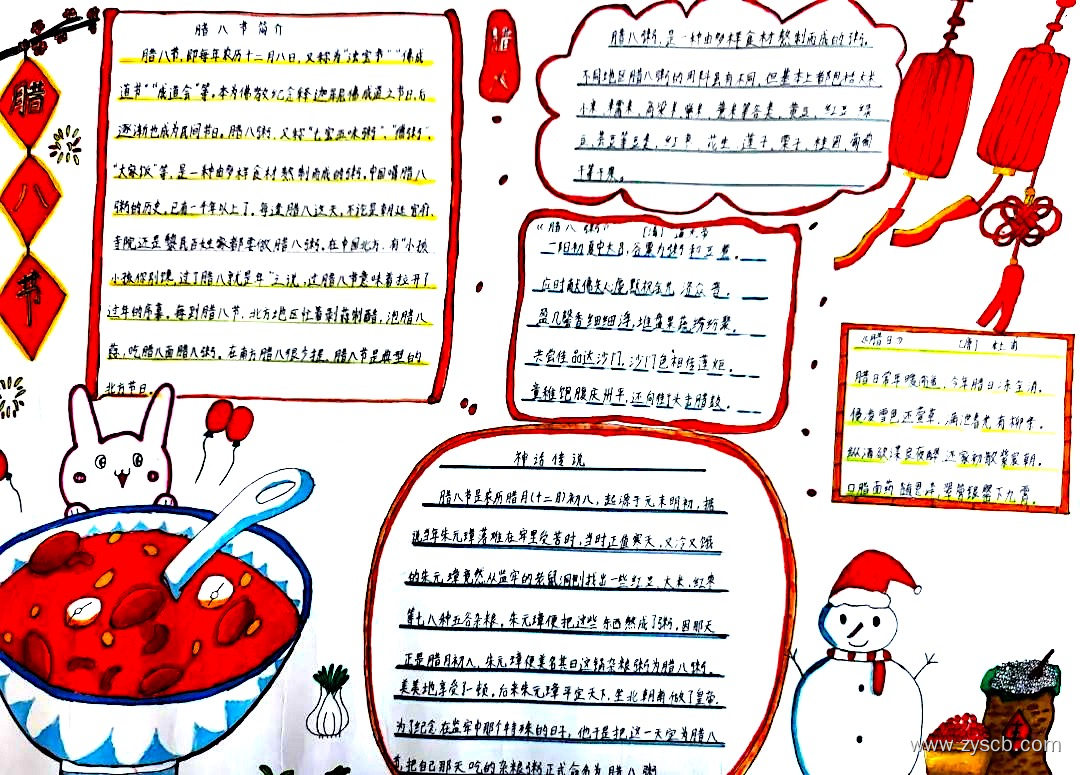 腊
八
节
腊八节简介
腊八节,即每年农历十二月八日,又称为“法宝节”“佛成
道节”“成道会”等。本为佛教纪念释迦牟尼佛成道之节日,后
逐渐也成为民间节日。腊八粥,又称“七宝五味粥”、“佛粥”、
“大家饭”等,是一种由多样食材熬制而成的粥。中国喝腊八
粥的历史,已有一千年以上了。每逢腊八这天,不论是朝廷官府、
寺院还是黎民百姓家都要做腊八粥。在中国北方,有“小孩
小孩你别馋,过了腊八就是年”之说,过腊八节意味着拉开了
过年的序幕。每到腊八节,北方地区忙着剥蒜制醋,泡腊八
蒜,吃腊八面腊八粥。在南方腊八很少提,腊八节是典型的
北方节日。
腊
八
腊八粥,是一种由多样食材熬制而成的粥。
不同地区腊八粥的用料虽有不同,但基本上都包括大米、
小米、糯米、高粱米、紫米、薏米等谷类,黄豆、红豆、绿
豆、芸豆等豆类,红枣、花生、莲子、栗子、桂圆、葡萄
干等干果。
《腊八粥》 [清]
一阳初夏中大吕,谷粟为粥和豆糜。
应时献佛矢心虔,默祝金光济众普。
盈几馨香细细浮,堆盘果蔬纷纷聚。
共尝佳品达沙门,沙门色相传莲炬。
童稚饱腹庆升平,还向街头击腊鼓。
《腊日》 [唐] 杜甫
腊日常年暖尚遥,今年腊日冻全消。
侵凌雪色还萱草,漏泄春光有柳条。
纵酒欲谋良夜醉,还家初散紫宸朝。
口脂面药随恩泽,翠管银罂下九霄。
神话传说
腊八节是农历腊月(十二月)初八,起源于元末明初,据
说当年朱元璋落难在牢里受苦时,当时正值寒天,又冷又饿
的朱元璋竟然从监牢的老鼠洞刨找出一些红豆、大米、红枣
等七八种五谷杂粮。朱元璋便把这些东西熬成了粥,因那天
正是腊月初八,朱元璋便美名其曰这锅杂粮粥为腊八粥。
美美地享受了一顿。后来朱元璋平定天下,坐北朝南做了皇帝。
为了纪念在监牢中那个特殊的日子,他于是把这一天定为腊八
节,把自己那天吃的杂粮粥正式命名为腊八粥
www.zyscb.com